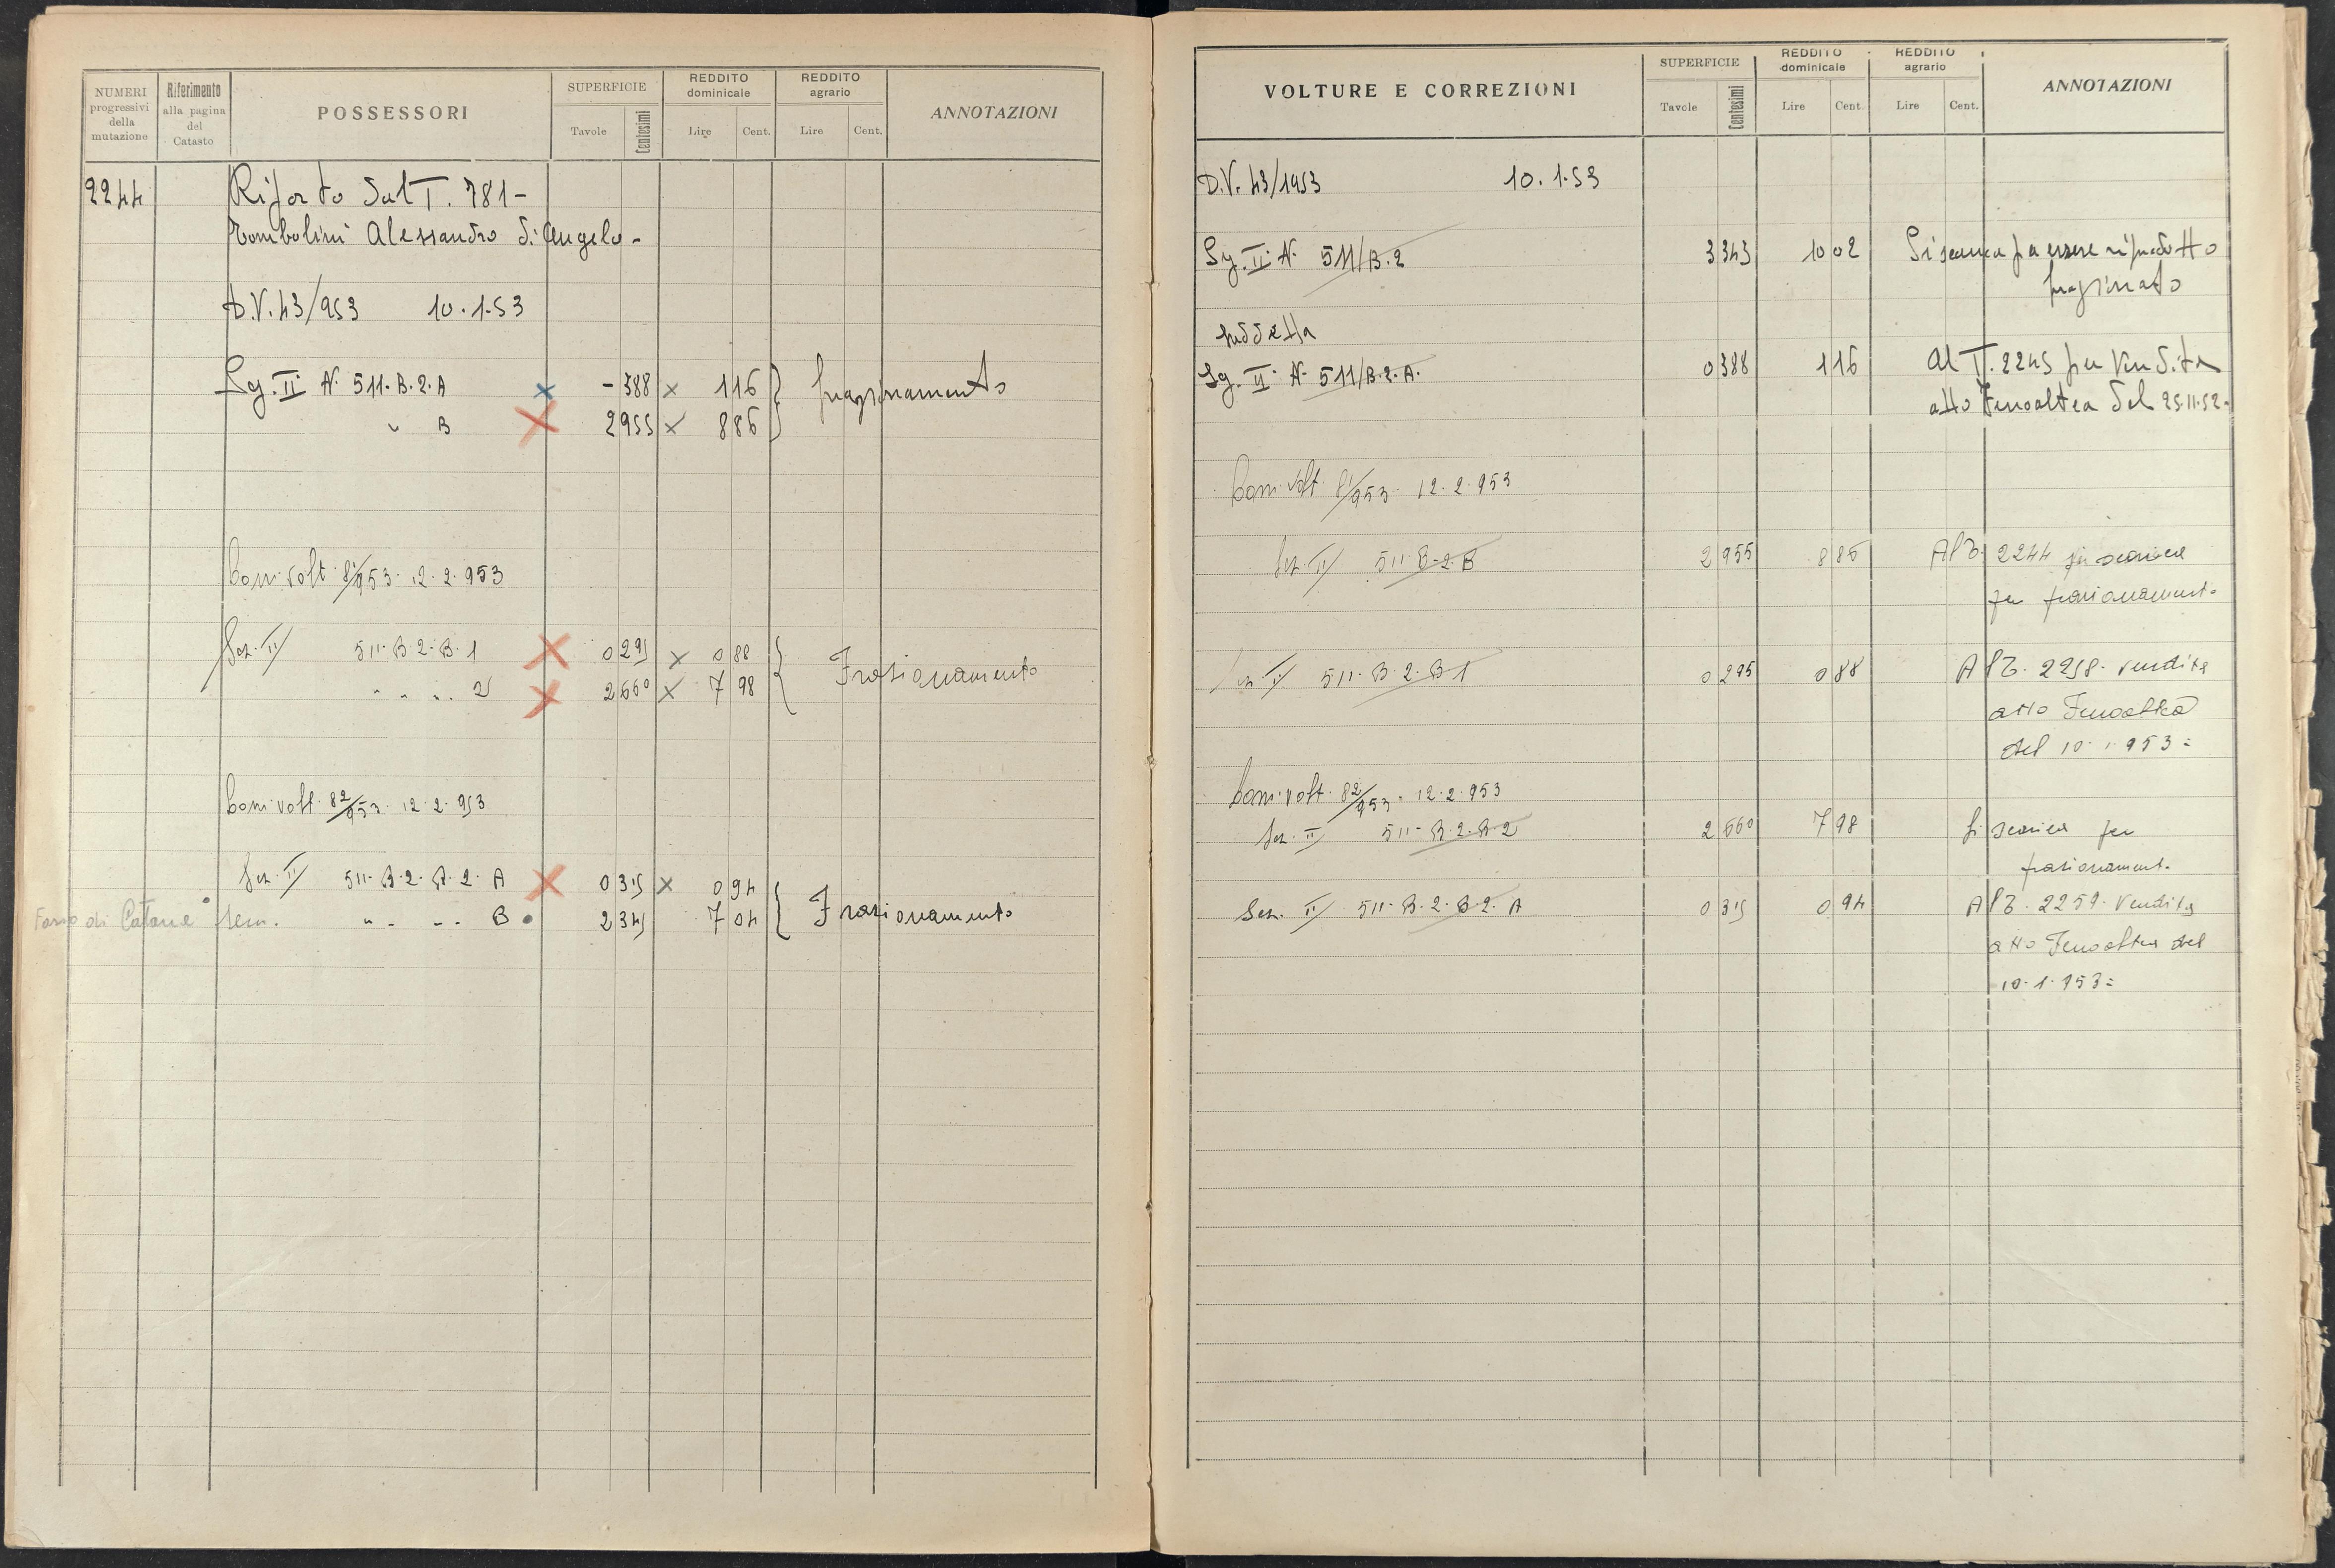 NUMERI progressivi della mutazione
Riferimento alla pagina del Catasto
POSSESSORI
SUPERFICIE
Tavole Centesimi
REDDITO dominicale
Lire Cent.
REDDITO agrario
Lire Cent.
ANNOTAZIONI
2244 Riporto dal T. 781 -
Tombolini Alessandro di Angelo -
D.V. 43/953 10.1.53
Sez. II N. 511-B.2.A x - 388 x 1 16 frazionamento
" B x 2955 x 8 86
Com. volt. 81/953. 12.2.953
Sez. II 511-B-2-B-1 x 0 295 x 0 88 Frazionamento
" " " 2 x 2 660 x 7 98
Com. volt. 82/953. 12.2.953
Sez. II 511-B-2-B-2-A x 0 315 x 0 94 Frazionamento
di Catane sem. " " " B 2 345 7 04
VOLTURE E CORREZIONI
SUPERFICIE
Tavole Centesimi
REDDITO dominicale
Lire Cent.
REDDITO agrario
Lire Cent.
ANNOTAZIONI
D.V. 43/1953 10.1.53
Sez. II N. 511/B.2 3 343 10 02 Si scarica per essere riprodotto
frazionato
suddetta
Sez. II N. 511/B.2.A. 0 388 1 16 Al T. 2245 per vendita
atto Fenoaltea del 25.11.52.
Com. volt. 81/953. 12.2.953
Sez. II 511-B-2-B 2 955 8 86 Al T. 2244 si scarica
per frazionament.
Sez. II 511-B-2-B1 0 295 0 88 Al T. 2258. vendita
atto Fenoaltea
del 10.1.953=
Com. volt. 82/953. 12.2.953
Sez. II 511-B.2.B-2 2 660 7 98 Si scarica per
frazionament.
Sez. II 511-B-2-B2-A 0 315 0 94 Al T. 2259. Vendita
atto Fenoaltea del
10.1.953=